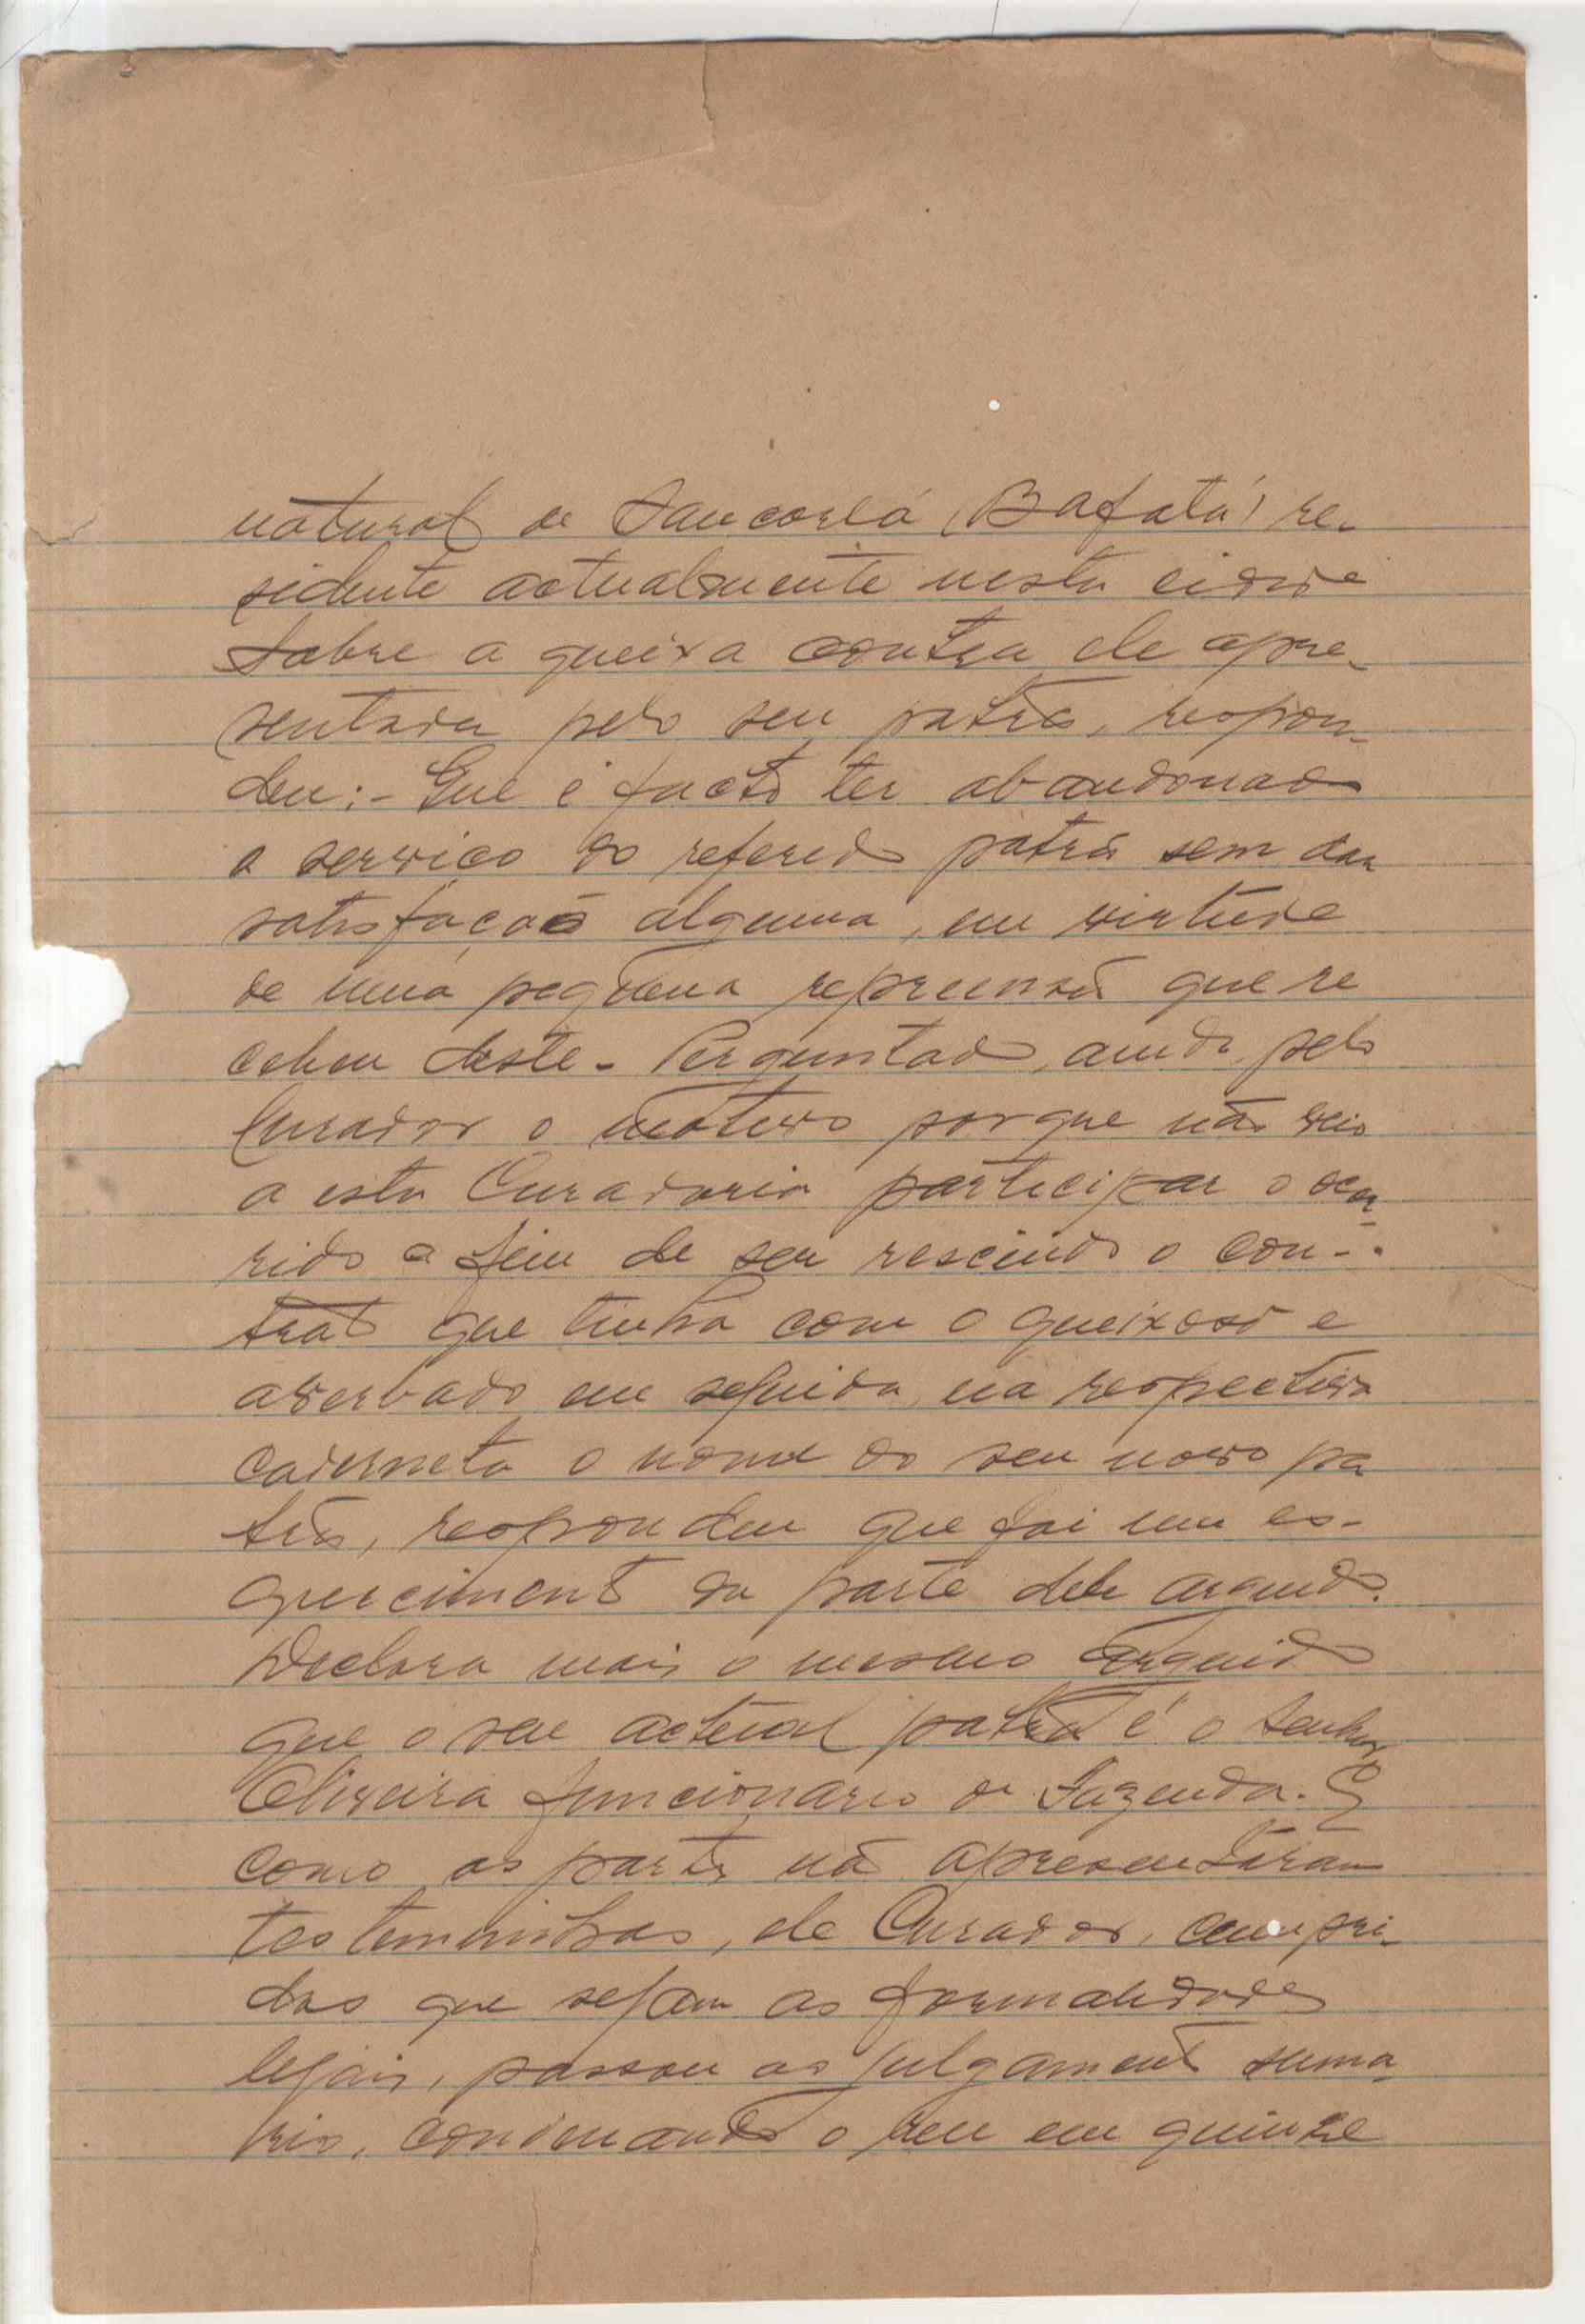 natural de Sancorlá (Bafatá) re-
sidente actualmente nesta cidade
sobre a queixa contra ele apre-
sentada pelo seu patrão, respon-
deu:- Que é facto ter abandonado
o serviço do referido patrão sem dar
satisfação alguma, em virtude
de uma pequena repreensão que re
cebeu deste - Perguntado, ainda, pelo
Curador o motivo porque não veio
a esta Curadoria participar o ocor-
rido a fim de ser rescindido o con-
trato que tinha com o queixoso e
averbado em seguida, na respectiva
caderneta o nome do seu novo pa
trão, respondeu que foi um es-
quecimento da parte dele arguido.
Declara mais o mesmo arguido
que o seu actual patrão é o senhor
Oliveira funcionario de Fazenda. E
como as partes não apresentáram
testemunhas, ele Curador, cumpri-
das que sejam as formalidades
legais, passou ao julgamento suma-
rio, condenando o reu em quinze